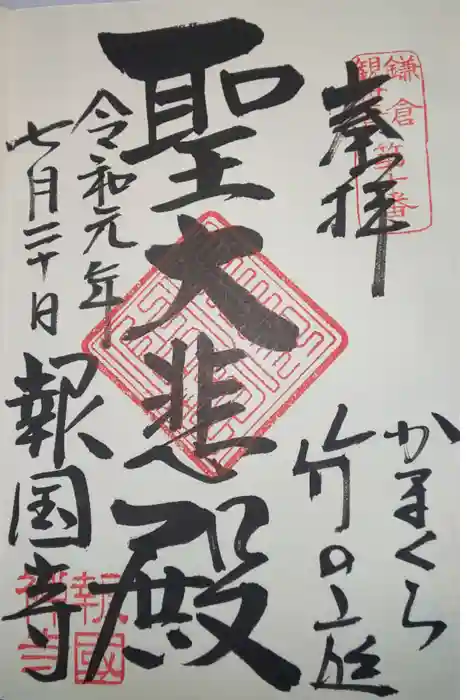 奉拝
鎌倉
観音
第十番
かまくら
竹の庭
聖大悲殿
令和元年
七月二十日
報国寺
報國
禅寺